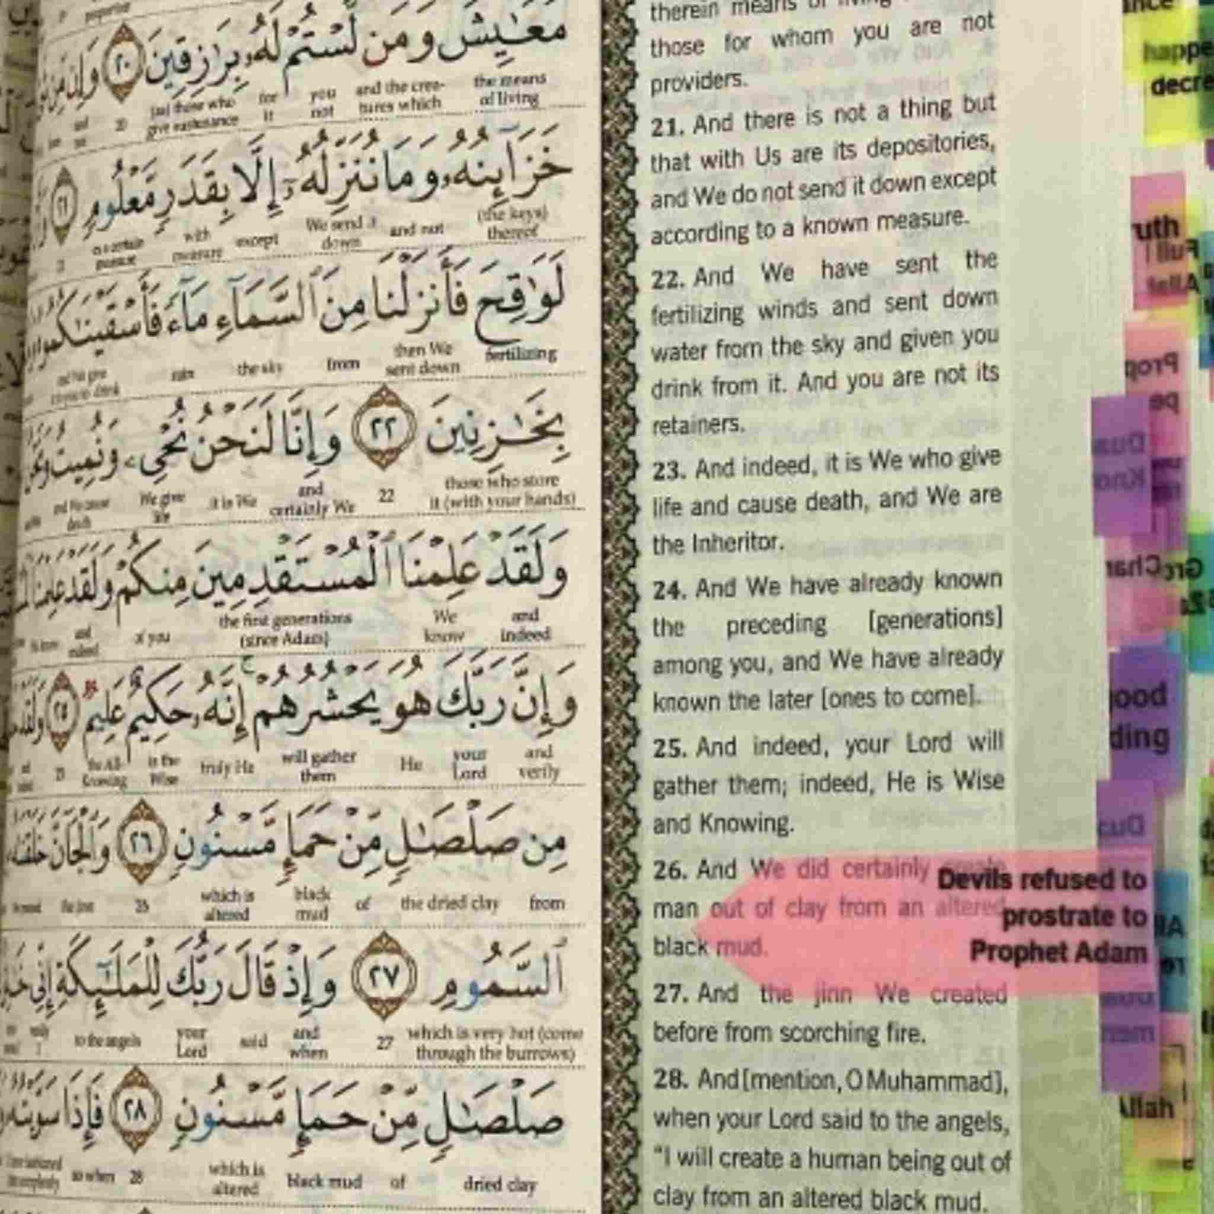 مَعَٰيِشَ وَمَن لَّسْتُمْ لَهُۥ بِرَٰزِقِينَ ٢٠ وَإِن مِّن
the means of living
and the crea-tures which
you not
for it
20
خَزَآئِنُهُۥ وَمَا نُنَزِّلُهُۥٓ إِلَّا بِقَدَرٍ مَّعْلُومٍ ٢١
(the keys) thereof
and not
We send it down
except
with measure
لَوَٰقِحَ فَأَنزَلْنَا مِنَ ٱلسَّمَآءِ مَآءً فَأَسْقَيْنَٰكُمُوهُ
fertilizing
then We sent down
from
the sky
rain
بِخَٰزِنِينَ ٢٢ وَإِنَّا لَنَحْنُ نُحْىِۦ وَنُمِيتُ
those who store it (with your hands)
22
and certainly We
it is We
We give life
وَلَقَدْ عَلِمْنَا ٱلْمُسْتَقْدِمِينَ مِنكُمْ وَلَقَدْ عَلِمْنَا
and indeed
We know
the first generations (since Adam)
of you
and indeed
وَإِنَّ رَبَّكَ هُوَ يَحْشُرُهُمْ إِنَّهُۥ حَكِيمٌ عَلِيمٌ ٢٥ وَلَقَدْ
and verily
your Lord
He
will gather them
truly He
is the Wise
the All-Knowing
25
مِن صَلْصَٰلٍ مِّنْ حَمَإٍ مَّسْنُونٍ ٢٦ وَٱلْجَآنَّ خَلَقْنَٰهُ
from
the dried clay
of
black mud
which is altered
26
ٱلسَّمُومِ ٢٧ وَإِذْ قَالَ رَبُّكَ لِلْمَلَٰٓئِكَةِ إِنِّى
which is very hot (come through the burrows)
27
and when
said
your Lord
to the angels
صَلْصَٰلٍ مِّنْ حَمَإٍ مَّسْنُونٍ ٢٨ فَإِذَا سَوَّيْتُهُۥ
dried clay
of
black mud
which is altered
28
so when
therein means of
those for whom you are not
providers.
21. And there is not a thing but
that with Us are its depositories,
and We do not send it down except
according to a known measure.
22. And We have sent the
fertilizing winds and sent down
water from the sky and given you
drink from it. And you are not its
retainers.
23. And indeed, it is We who give
life and cause death, and We are
the Inheritor.
24. And We have already known
the preceding [generations]
among you, and We have already
known the later [ones to come].
25. And indeed, your Lord will
gather them; indeed, He is Wise
and Knowing.
26. And We did certainly create
man out of clay from an altered
black mud.
27. And the jinn We created
before from scorching fire.
28. And [mention, O Muhammad],
when your Lord said to the angels,
"I will create a human being out of
clay from an altered black mud.
Devils refused to
prostrate to
Prophet Adam
happe
decre
uth
ood
ding
Allah